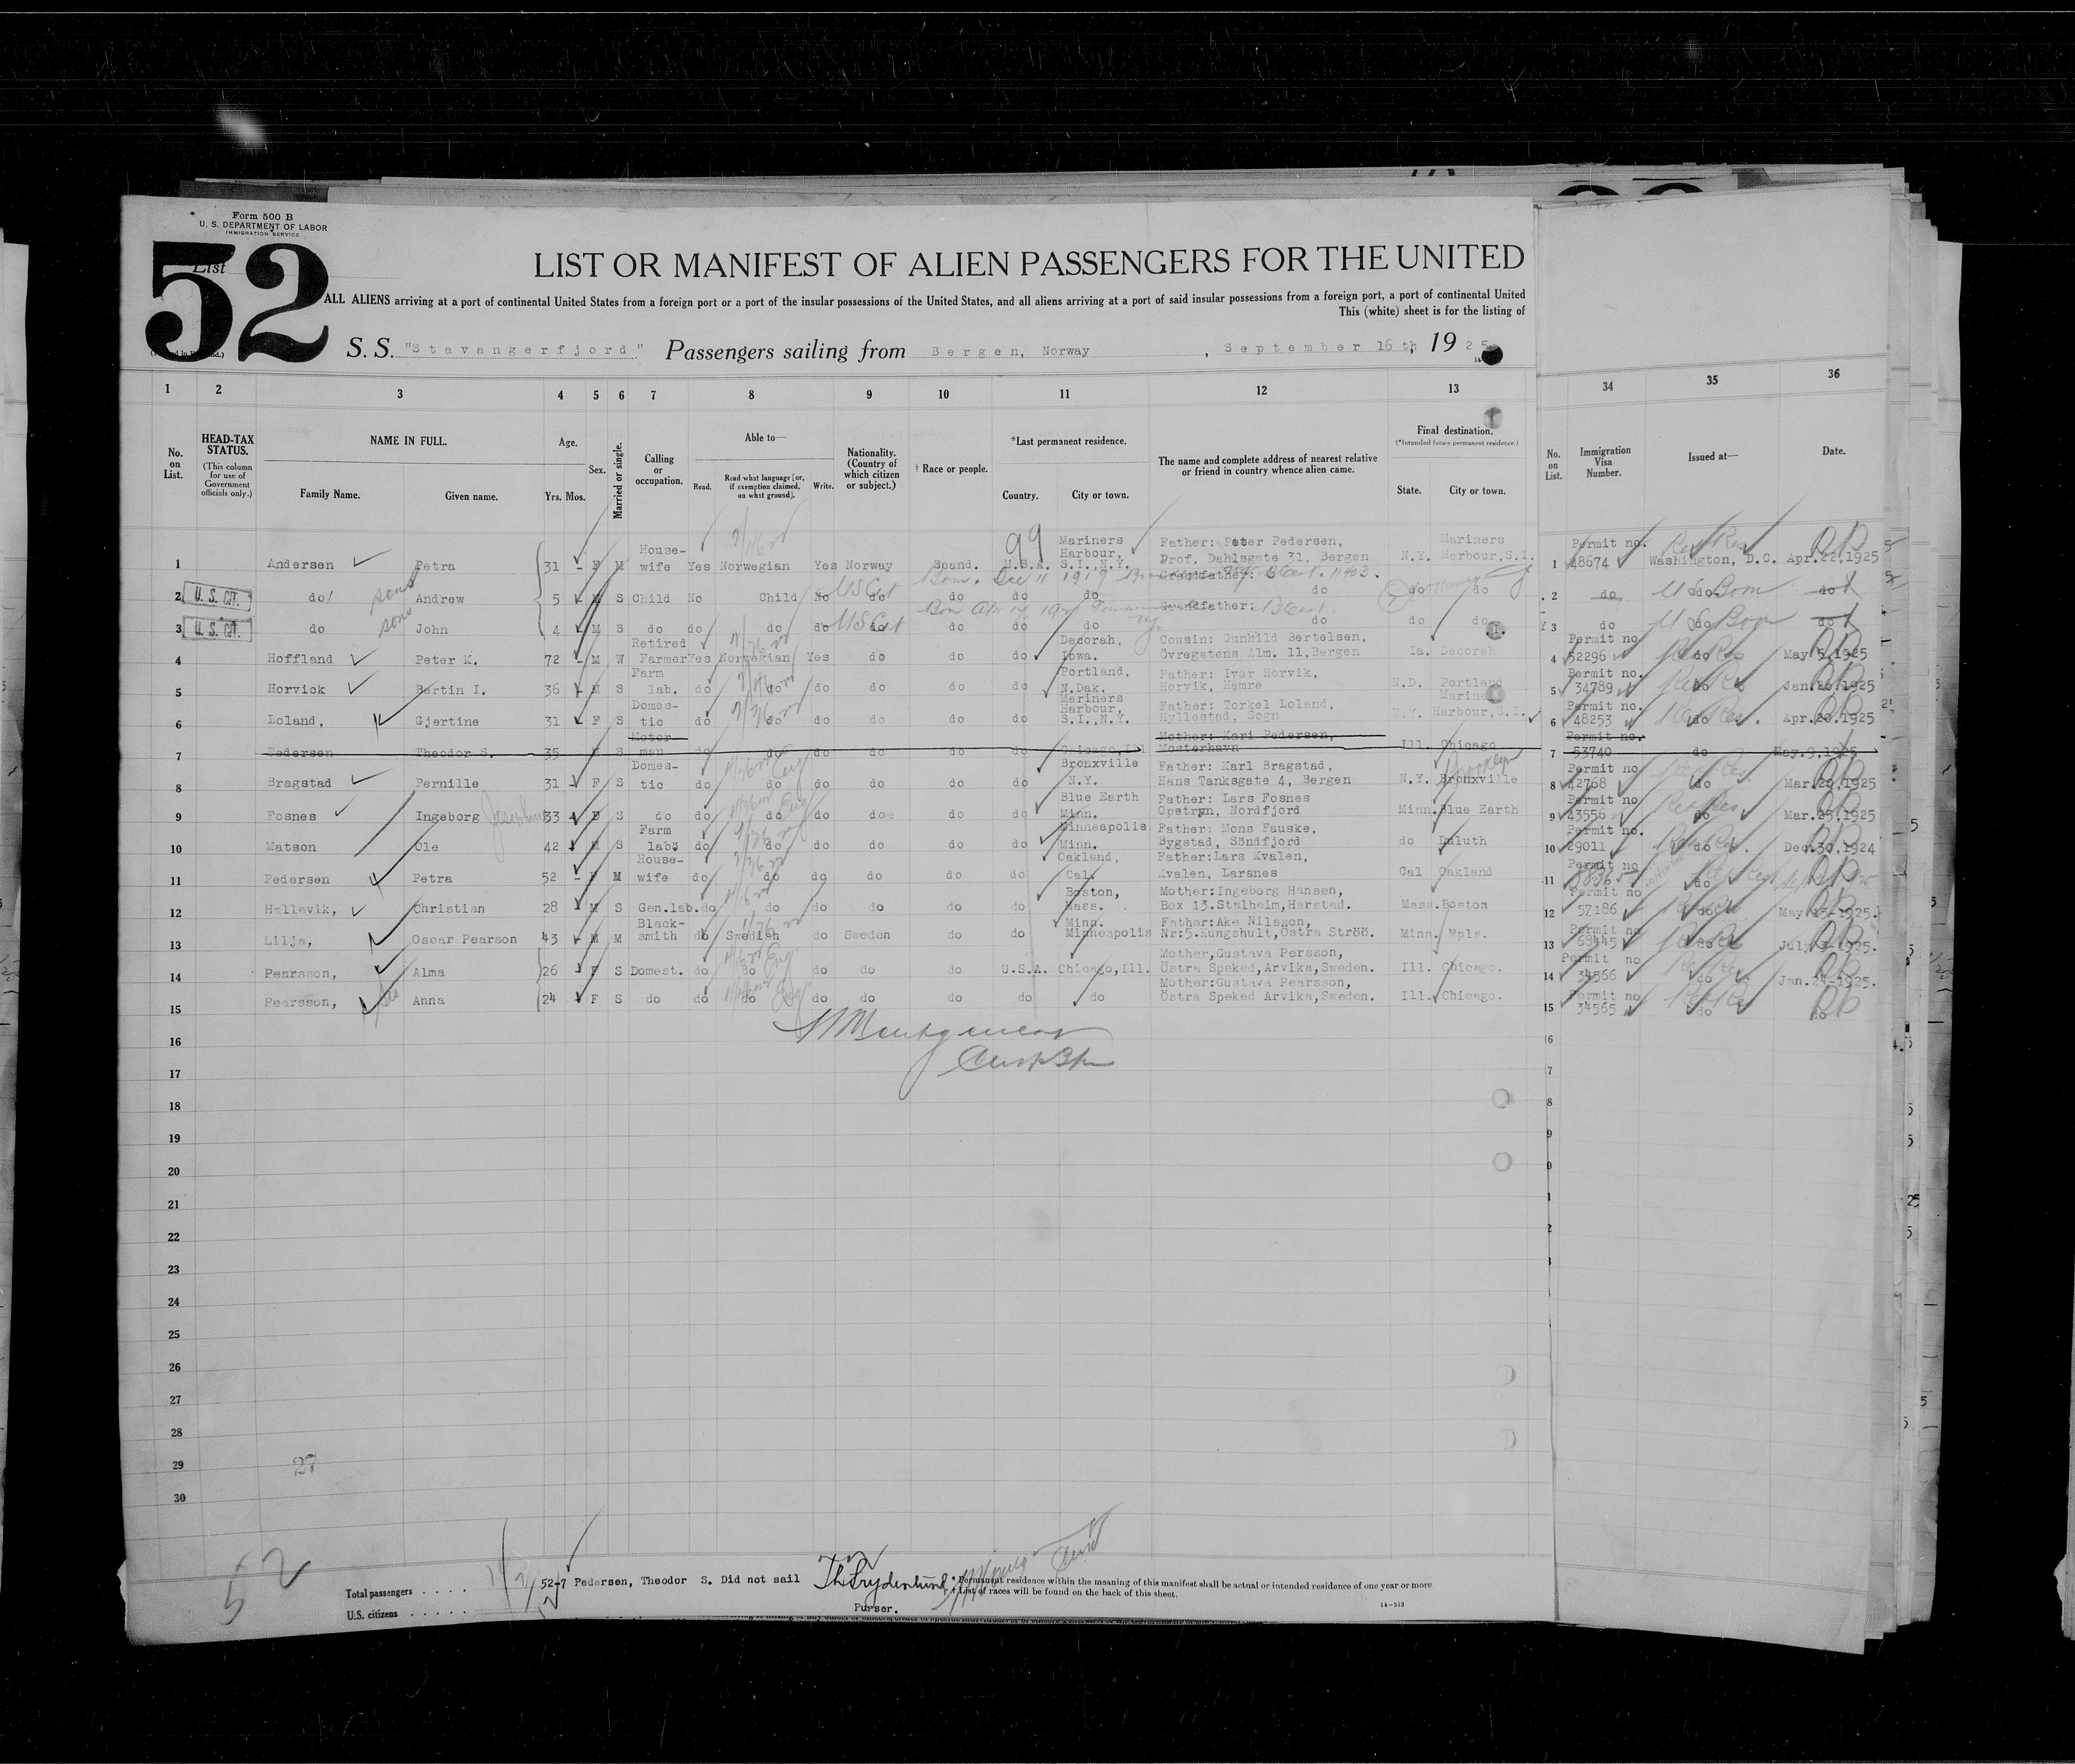 Form 500 B
U. S. DEPARTMENT OF LABOR
IMMIGRATION SERVICE
List
52
LIST OR MANIFEST OF ALIEN PASSENGERS FOR THE UNITED
ALL ALIENS arriving at a port of continental United States from a foreign port or a port of the insular possessions of the United States, and all aliens arriving at a port of said insular possessions from a foreign port, a port of continental United
This (white) sheet is for the listing of
S. S. "Stavangerfjord" Passengers sailing from Bergen, Norway, September 16th, 1925
1 2 3 4 5 6 7 8 9 10 11 12 13 34 35 36
No. on List.
HEAD-TAX STATUS.
(This column for use of Government officials only.)
NAME IN FULL.
Family Name. Given name.
Age.
Yrs. Mos.
Sex.
Married or single.
Calling or occupation.
Able to—
Read. Read what language [or, if exemption claimed, on what ground]. Write.
Nationality. (Country of which citizen or subject.)
† Race or people.
*Last permanent residence.
Country. City or town.
The name and complete address of nearest relative or friend in country whence alien came.
Final destination.
(*Intended future permanent residence.)
State. City or town.
No. on List.
Immigration Visa Number.
Issued at—
Date.
99
1 Andersen Petra 31 F M House-wife Yes Norwegian Yes Norway Scand. U.S.A. Mariners Harbour, S.I.,N.Y. Father: Peter Pedersen, Prof. Dahlsgate 31, Bergen N.Y. Mariners Harbour,S.I. 1 Permit no. 48674 Washington, D.C. Apr.22,1925
2 U. S. CIT. do sons Andrew 5 M S Child No Child No do US Cit do do do Grandfather: do do do 2 do do US Born do
Born Dec 11 1919
3 U. S. CIT. do sons John 4 M S do do do do US Cit do do do Grandfather: do do do 3 do do US Born do
4 Hoffland Peter K. 72 M W Retired Farmer Yes Norwegian Yes do do do Decorah, Iowa. Cousin: Gunhild Bertelsen, Övregatens Alm. 11,Bergen Ia. Decorah 4 Permit no 52296 do May 5,1925
5 Horvick Bertin I. 36 M S Farm lab. do do do do do do Portland, N.Dak. Father: Ivar Horvik, Horvik, Hamre N.D. Portland 5 Permit no. 34789 do Jan.26,1925
6 Loland, Gjertine 31 F S Domes-tic do do do do do do Mariners Harbour, S.I.,N.Y. Father: Torkel Loland, Hyllestad, Sogn N.Y. Mariners Harbour,S.I. 6 Permit no. 48253 do Apr.20.1925
7 Pedersen Theodor S. 35 M S Motor-man do do do do do do Chicago,Ill Mother: Kari Pedersen, Mosterhavn Ill. Chicago 7 Permit no. 53740 do May.9.1925
8 Bragstad Pernille 31 F S Domes-tic do do do do do do Bronxville N.Y. Father: Karl Bragstad, Hans Tanksgate 4, Bergen N.Y. Bronxville Brooklyn 8 Permit no 42768 do Mar.20,1925
9 Fosnes Ingeborg Josephine 33 F S do do do do do do do Blue Earth Minn. Father: Lars Fosnes Opstryn, Nordfjord Minn. Blue Earth 9 Permit no 43556 do Mar.25,1925
10 Matson Ole 42 M S Farm lab. do do do do do do Minneapolis Minn. Father: Mons Fauske, Bygstad, Söndfjord do Duluth 10 Permit no. 29011 do Dec.30,1924
11 Pedersen Petra 52 F M House-wife do do do do do do Oakland, Cal. Father:Lars Kvalen, Kvalen, Larsnes Cal Oakland 11 Permit no do
12 Hallevik, Christian 28 M S Gen.lab. do do do do do do Boston, Mass. Mother:Ingeborg Hansen, Box 13.Stalheim,Harstad. Mass. Boston 12 Permit no 57186 do May 15-1925.
13 Lilja, Oscar Pearson 43 M M Black-smith do Swedish do Sweden do do Minn. Minneapolis Father:Ake Nilsson, Nr:5.Kungshult,Östra Ströö. Minn. Mpls. 13 Permit no 68445 do July 3-1925.
14 Pearsson, Alma 26 F S Domest. do do do do do U.S.A. Chicago,Ill. Mother,Gustava Persson, Östra Speked,Arvika,Sweden. Ill. Chicago. 14 Permit no 34566 do Jan.24-1925.
15 Pearsson, Anna 24 F S do do do do do do do do Mother:Gustava Pearsson, Östra Speked Arvika,Sweden. Ill. Chicago. 15 Permit no 34565 do do
16
17
18
19
20
21
22
23
24
25
26
27
28
29
30
27
52
Total passengers . . . .
U.S. citizens . . . . . .
52-7 Pedersen, Theodor S. Did not sail
Purser.
* Permanent residence within the meaning of this manifest shall be actual or intended residence of one year or more
† List of races will be found on the back of this sheet.
14—213